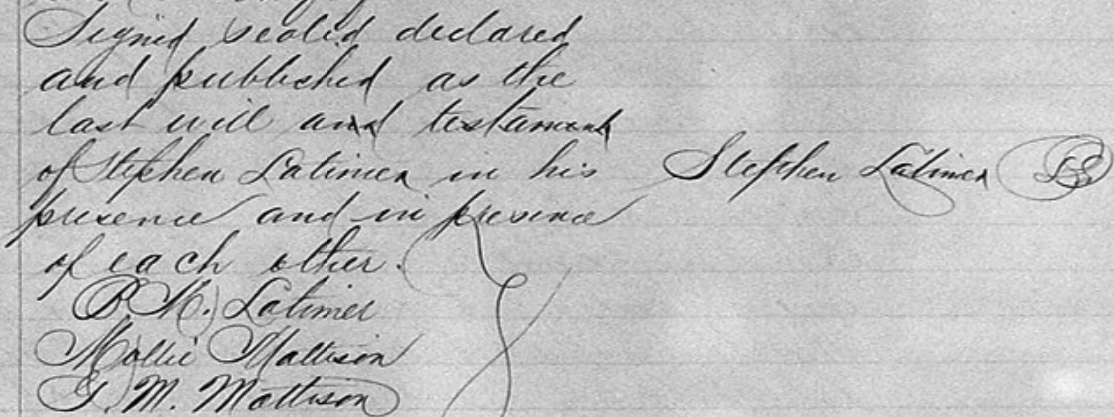 Signed sealed declared
and published as the
last will and testament
of Stephen Latimer in his
presence and in presence
of each other.
Stephen Latimer LS
B. M. Latimer
Mollie Mattison
G. M. Mattison